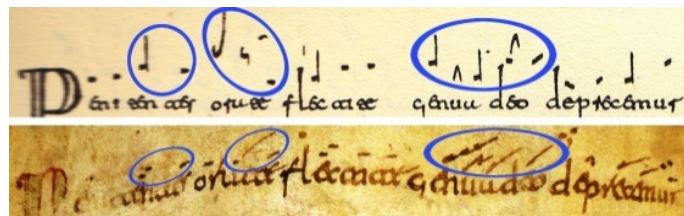 Penitentes orate flectite genua deo deprecemur
Penitentes orate flectite genua deo deprecemur